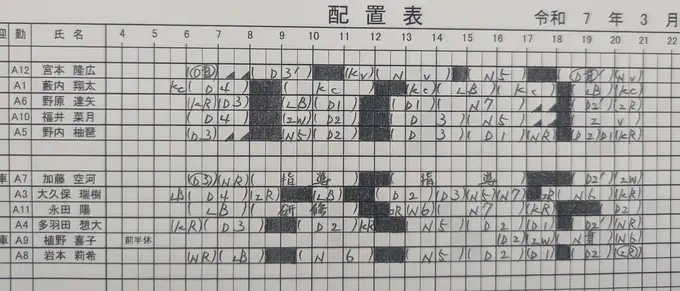 配置表 令和 7 年 3 月
迎 勤 氏 名 4 5 6 7 8 9 10 11 12 13 14 15 16 17 18 19 20 21 22
A12 宮本 隆広 ( D3' ) (KV) ( N V ) ( N5 ) (NV)
A1 薮内 翔太 KC ( D4 ) ( KC ) KC ( LB ) ( KC ) ( LB ) KC
A6 野原 達矢 (KR) (D3) (LB) (D1) (D1) ( N7 ) (D2') (2R)
A10 福井 菜月 ( D4 ) (2W) ( D2 ) ( D3 ) ( N5 ) ( 2 V )
A5 野内 柚琶 (D.3) (N5) (D2) ( D3 ) ( D1 ) (NR) (D2) D1 (KR)
車 A7 加藤 空河 (D3) (NR) ( 指 導 ) ( 指 導 ) ( D2' ) (2W)
A3 大久保 瑞樹 LB ( D4 ) (2R) (LB) ( D2 ) (D3) (N5) (N7) 2R ( N6 ) (KR)
A11 永田 陽 ( LB ) ( 研 修 ) 2R (N6) ( N7 ) (KR) ( D2 )
A4 多羽田 想大 (KR) ( D3 ) ( D2 ) KR ( N5 ) ( D2 ) ( D1 ) (D2') (NR)
車 A9 植野 喜子 前半休 (D2) (2W) (N6)
A8 岩本 莉希 (NR) (LB) ( N 6 ) ( N5 ) ( D2 ) (D1) ( D2 ) (2R)